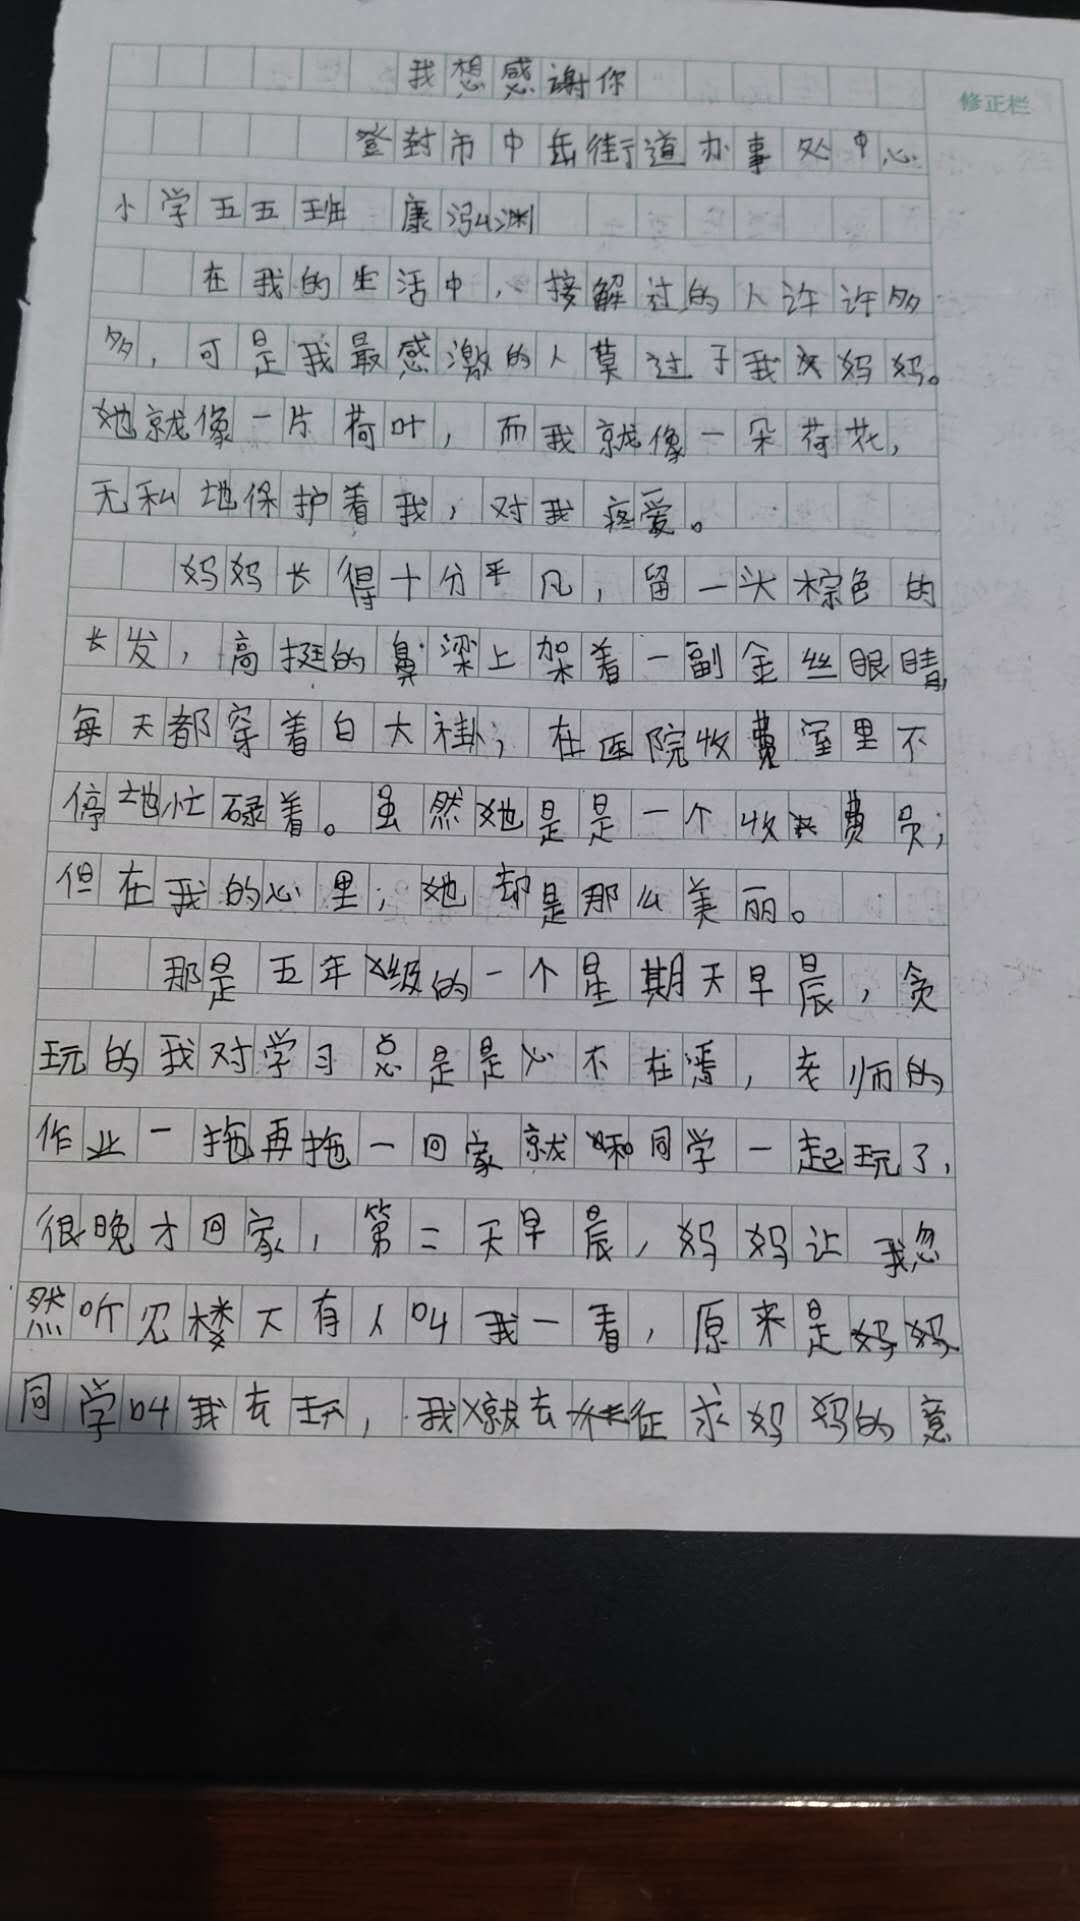 我想感谢你
修正栏
登封市中岳街道办事处中心
小学五五班 康泓渊
在我的生活中，接解过的人许许多
多，可是我最感激的人莫过于我妈妈。
她就像一片荷叶，而我就像一朵荷花，
无私地保护着我，对我疼爱。
妈妈长得十分平凡，留一头棕色的
长发，高挺的鼻梁上架着一副金丝眼睛，
每天都穿着白大褂；在医院收费室里不
停地忙碌着。虽然她是是一个收费员；
但在我的心里；她却是那么美丽。
那是五年级的一个星期天早晨，贪
玩的我对学习总是是心不在焉，老师的
作业一拖再拖一回家就和同学一起玩了，
很晚才回家，第二天早晨，妈妈让我忽
然听见楼下有人叫我一看，原来是妈妈
同学叫我去玩，我就去征求妈妈的意